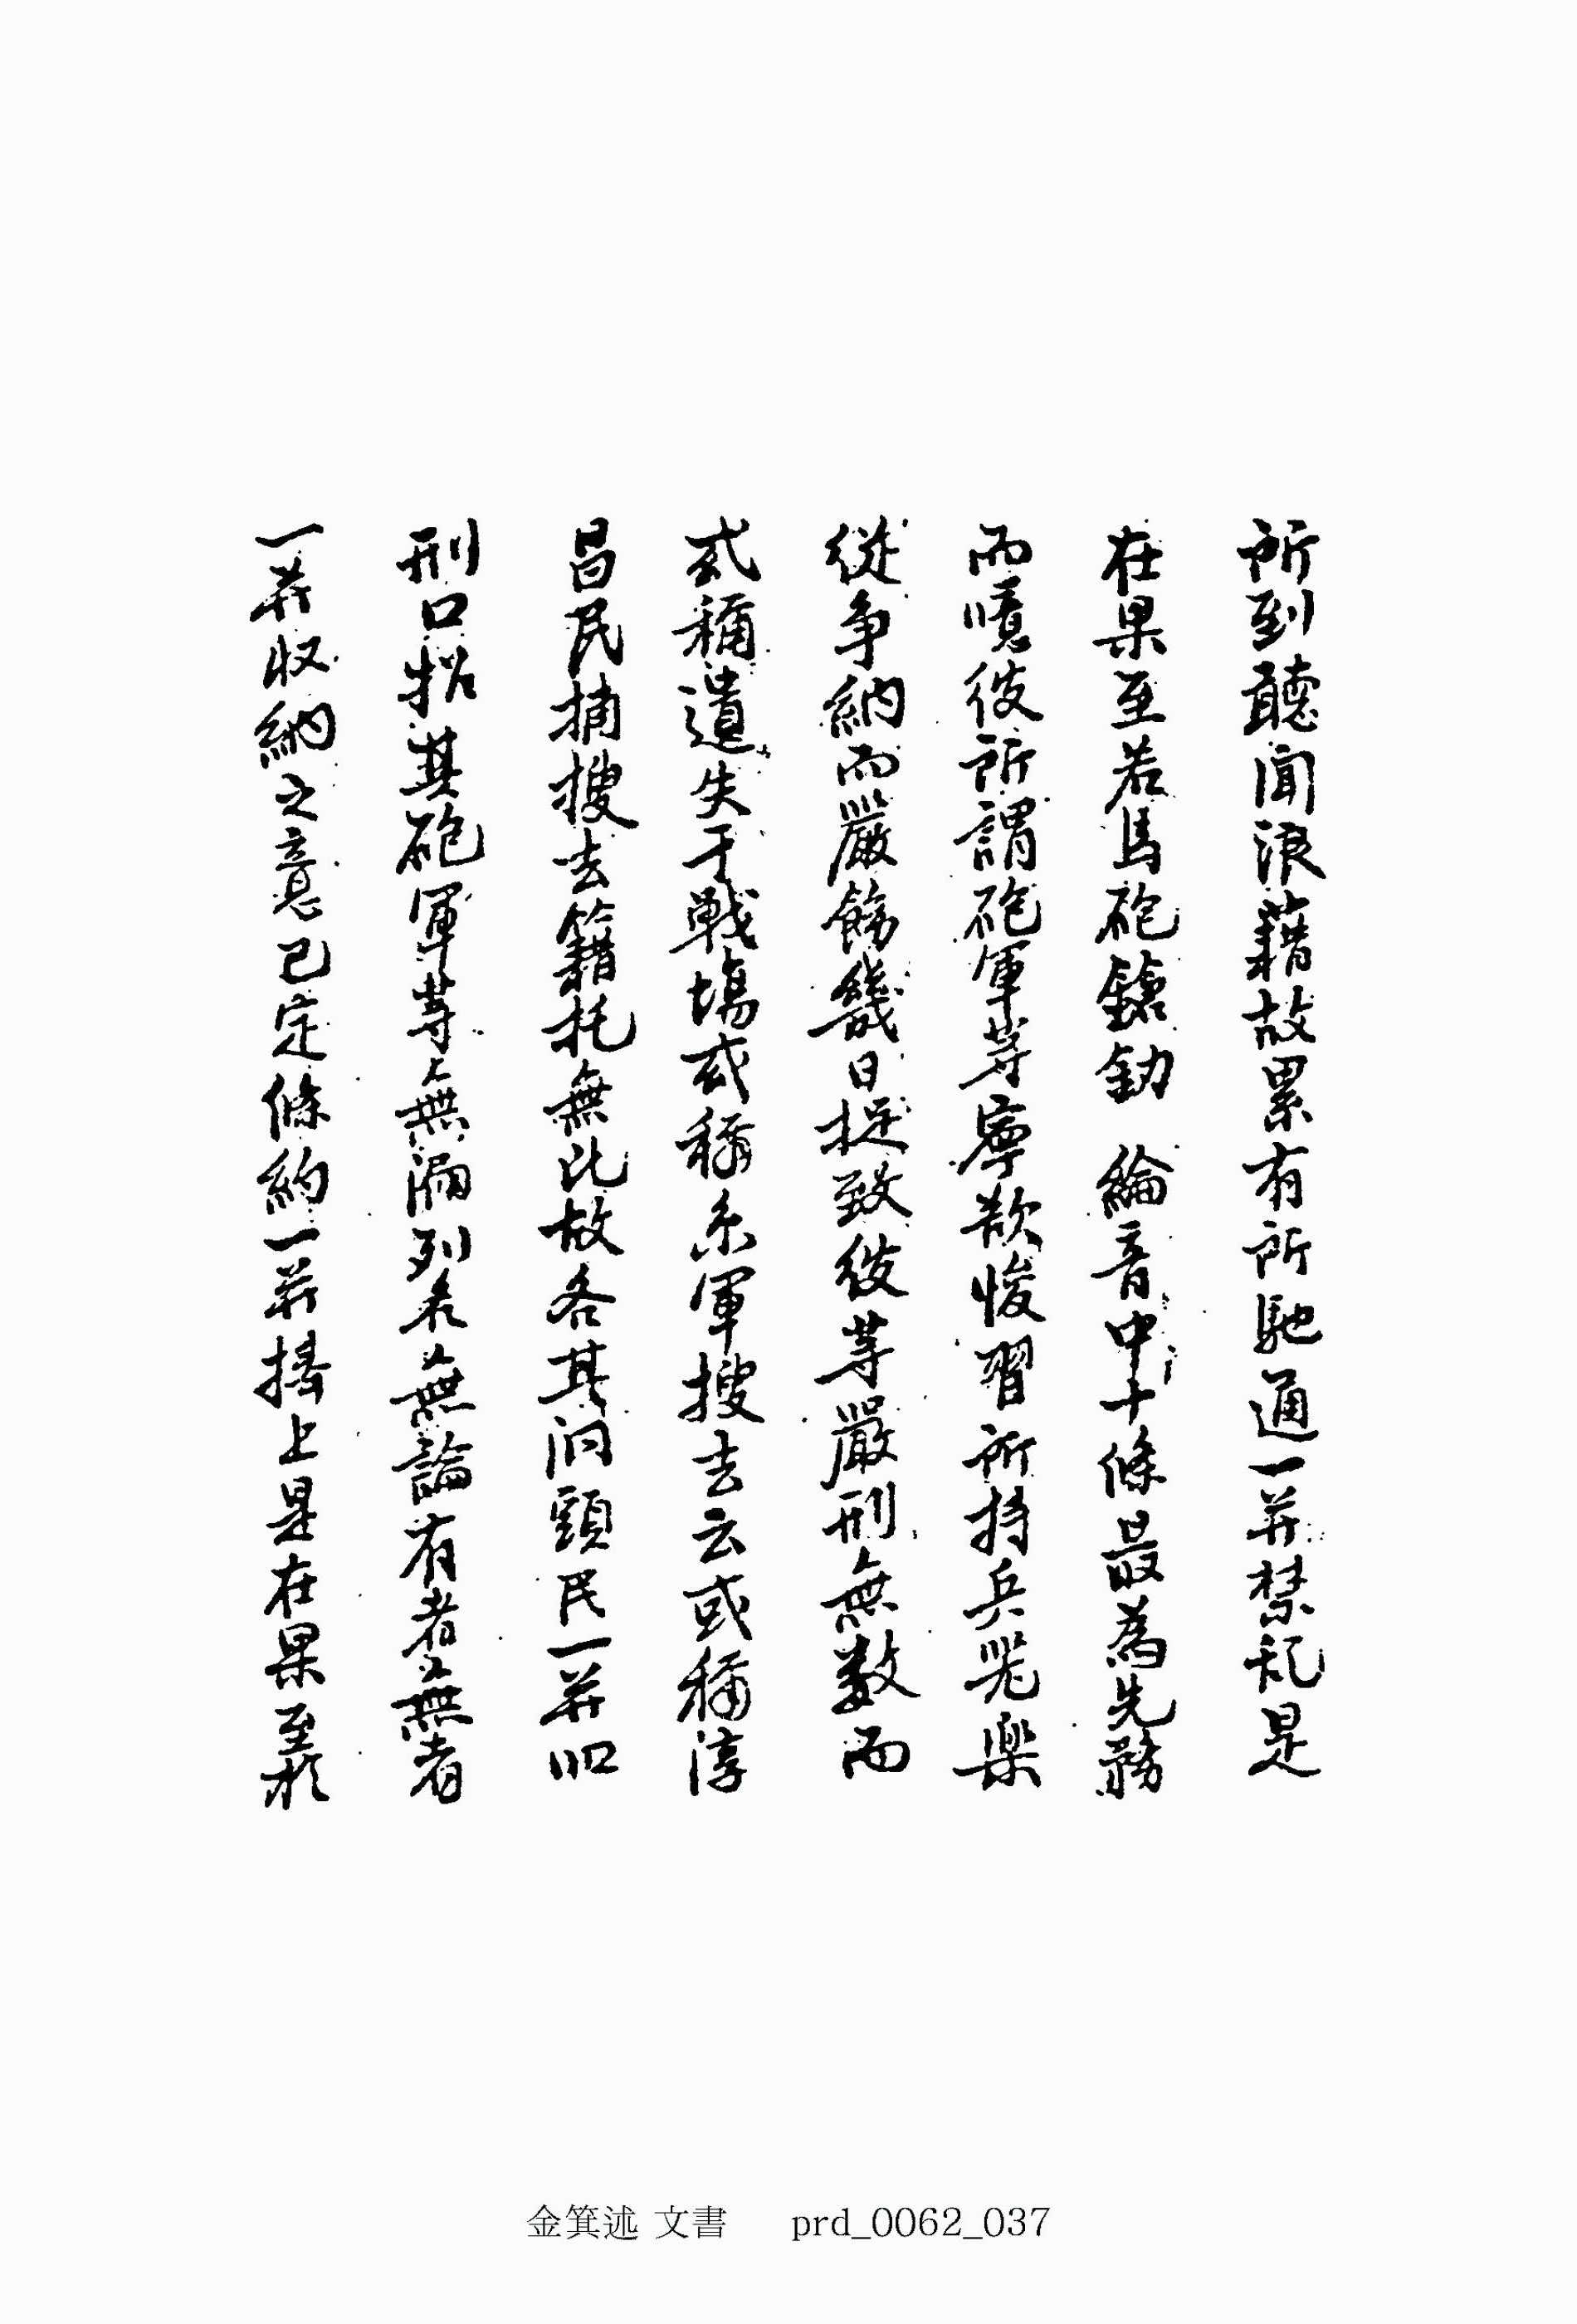 所到聽聞浪藉故累有所馳通一幷禁亂是
在果至若馬砲鎗釰 綸音中十條最爲先務
而噫彼所謂砲軍等寧欲悛習所持兵器樂
從爭納而嚴飭幾日捉致彼等嚴刑無数而
或稱遺失于戰塲或稱京軍搜去云或稱淳
昌民捕搜去籍托無比故各其洞頭民一幷
刑口招其砲軍等無漏列名無論有者無者
一幷収納之意已定條約一幷捧上是在果至於
金箕述 文書 prd_0062_037